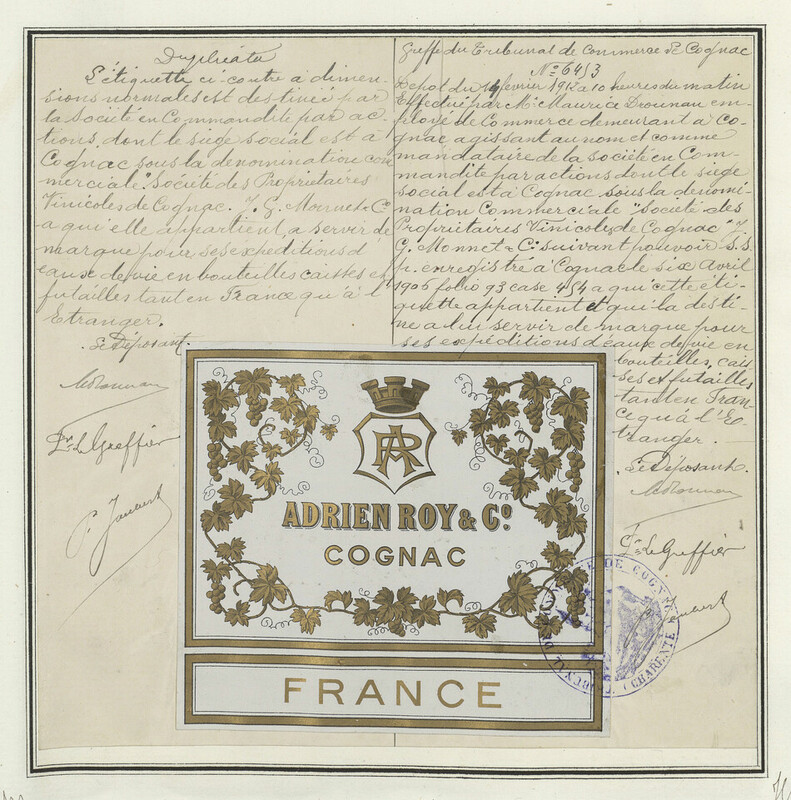 Duplicata
L'étiquette ci-contre a dimen-
sions normales est destinée par
la Société en Commandite par ac-
tions, dont le siège social est à
Cognac sous la dénomination com
merciale "Société des Propriétaires
Vinicoles de Cognac. J. G. Monnet & Cº
a qui elle appartient, a servir de
marque pour ses expéditions d'
eaux de vie en bouteilles caisses et
futailles tant en France qu'à l'
Etranger.
Le Déposant.
Le Greffier
Greffe du Tribunal de Commerce de Cognac
Nº 6453
Dépôt du 14 février 1912 a 10 heures du matin
Effectué par Mr Maurice Drounau em-
ployé de Commerce demeurant à Co-
gnac agissant au nom et comme
mandataire de la Société en Com-
mandite par actions dont le siège
social est à Cognac sous la dénomi-
nation Commerciale "Société des
Propriétaires Vinicoles de Cognac" J.
G. Monnet & Cº suivant pouvoir s.s.
p. enregistré à Cognac le six Avril
1906 folio 93 case 454 a qui cette éti-
quette appartient et qui la desti-
ne a lui servir de marque pour
ses expéditions d'eaux de vie en
bouteilles, cais
ses et futailles
tant en Fran-
ce qu'à l'E-
tranger.
Le Déposant.
Le Greffier
AR
ADRIEN ROY & Cº
COGNAC
FRANCE
DE COGNAC
(CHARENTE)